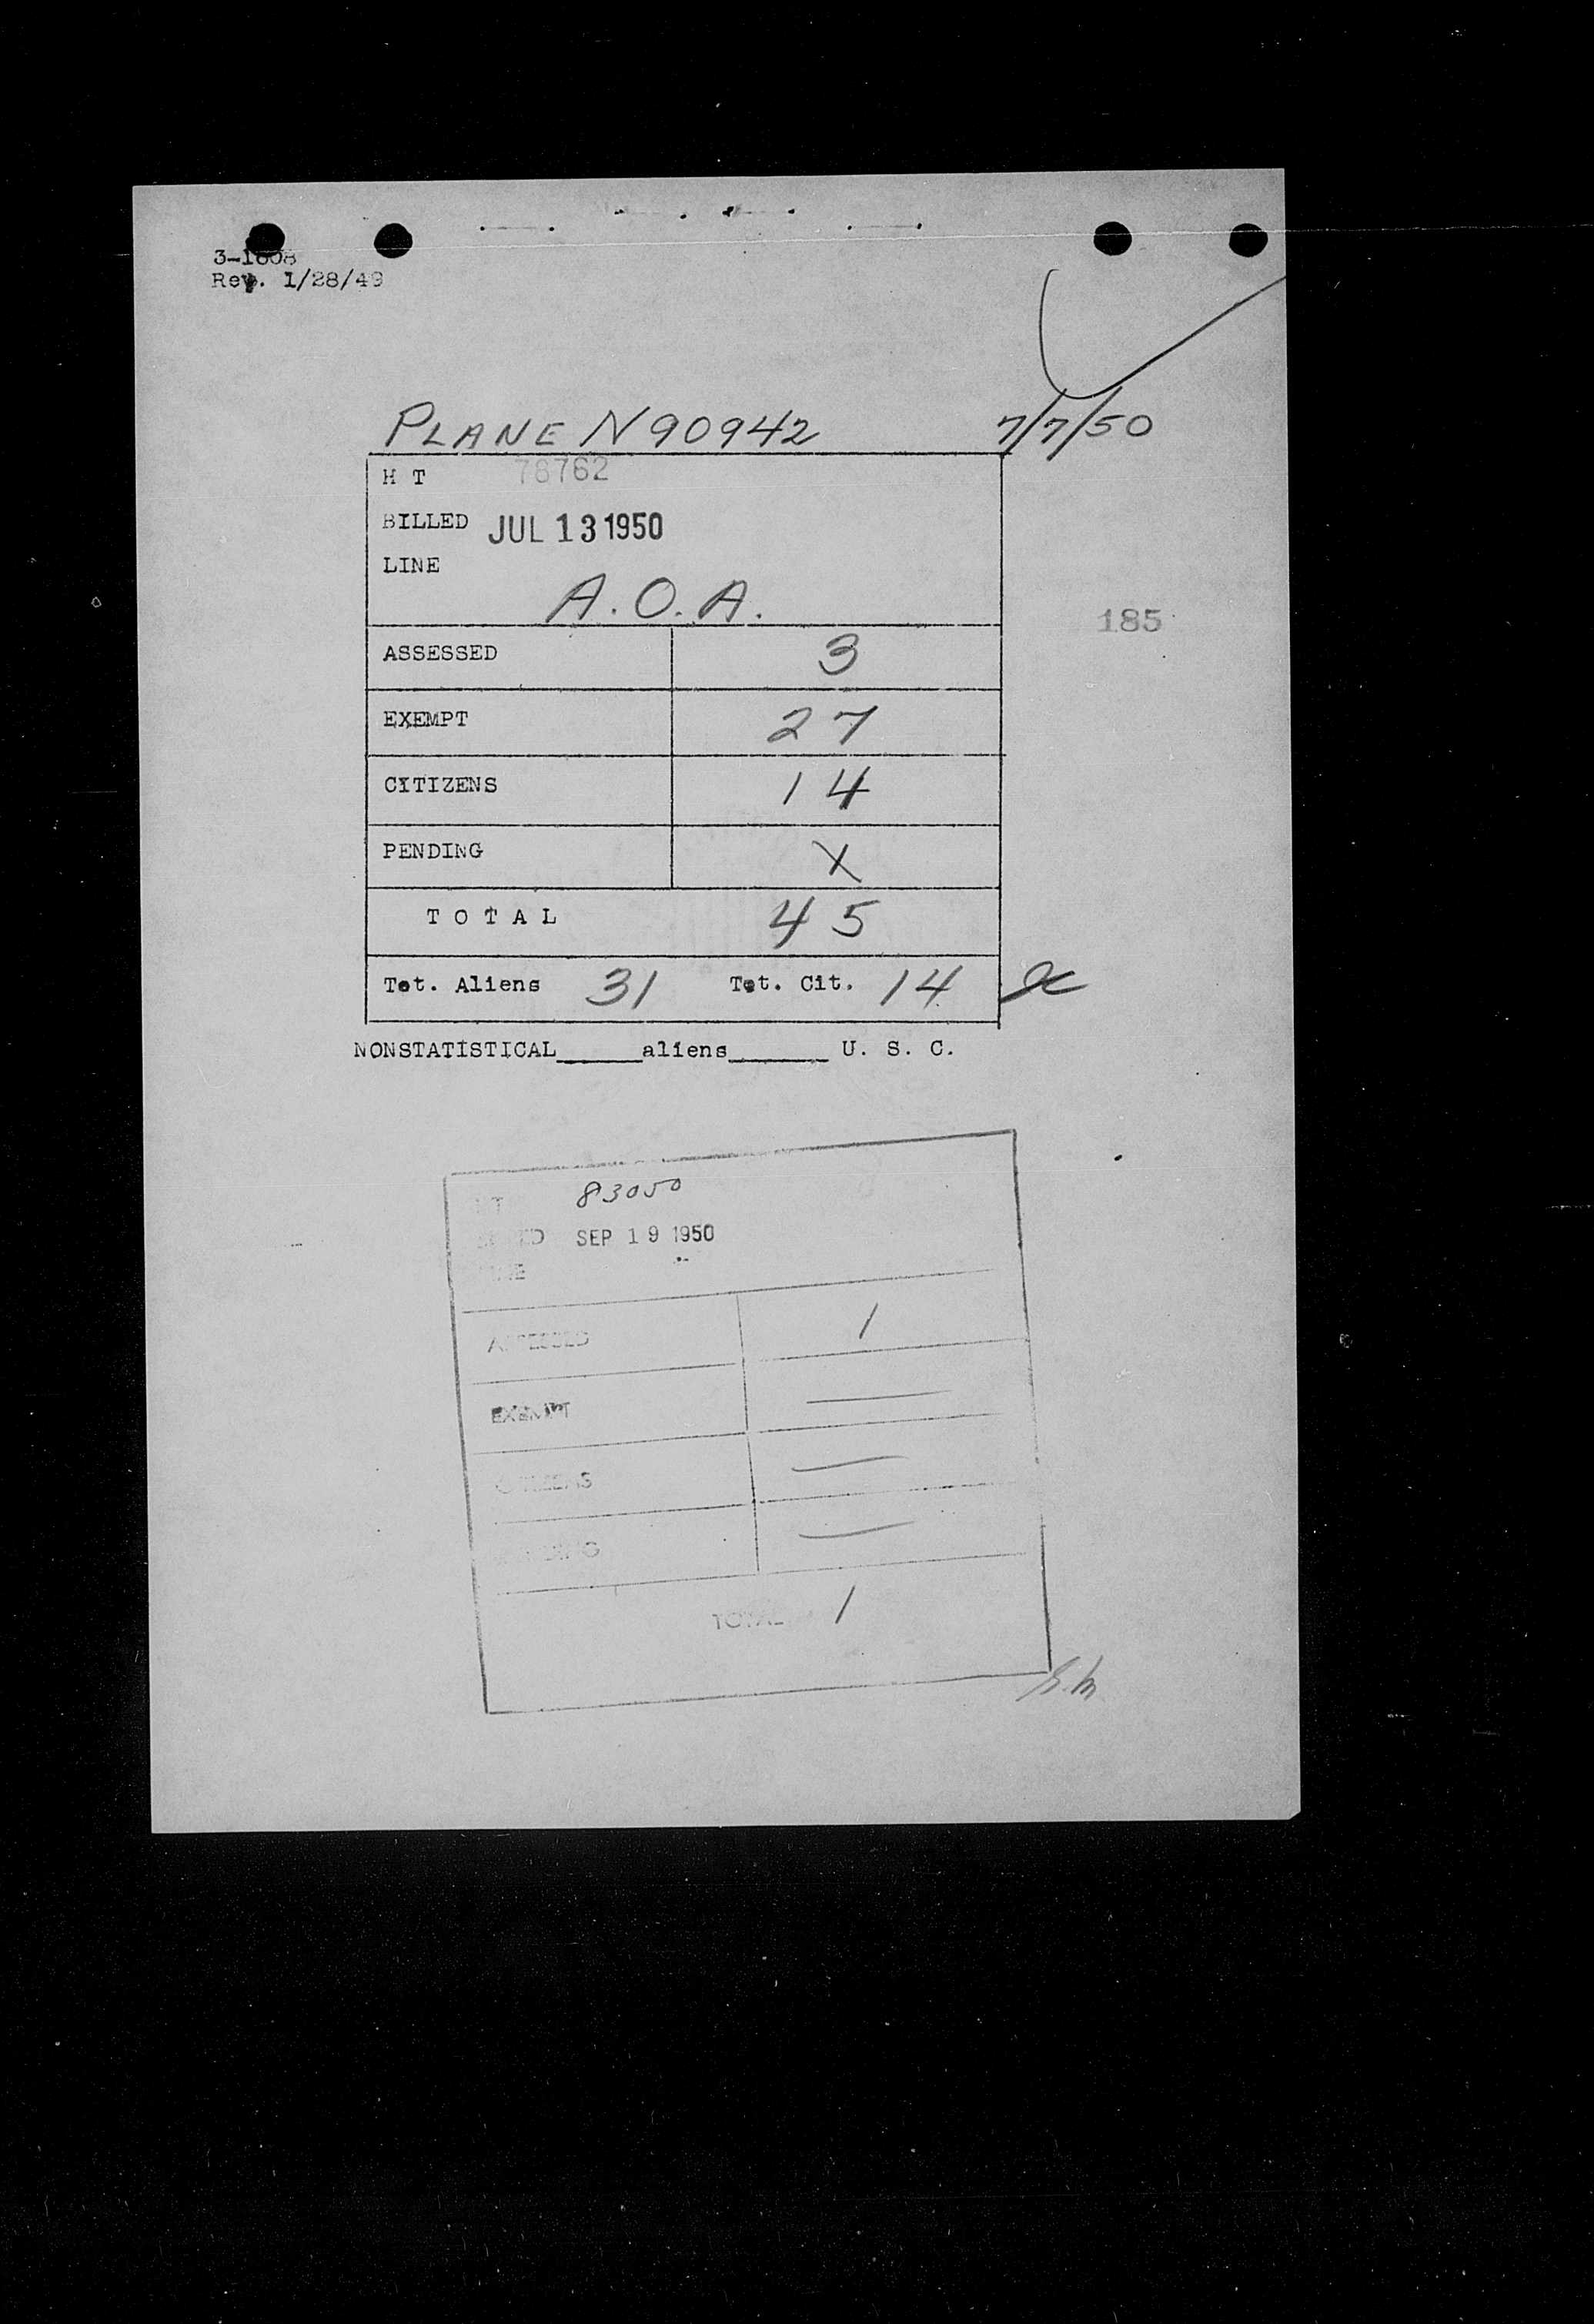 3-1608
Rev. 1/28/49
PLANE N90942 7/7/50
H T 78762
BILLED JUL 13 1950
LINE
A.O.A.
185
ASSESSED 3
EXEMPT 27
CITIZENS 14
PENDING X
TOTAL 45
Tot. Aliens 31 Tot. Cit. 14
NONSTATISTICAL______aliens_______ U. S. C.
83050
SEP 19 1950
ASSESSED 1
EXEMPT —
CITIZENS —
PENDING —
TOTAL 1